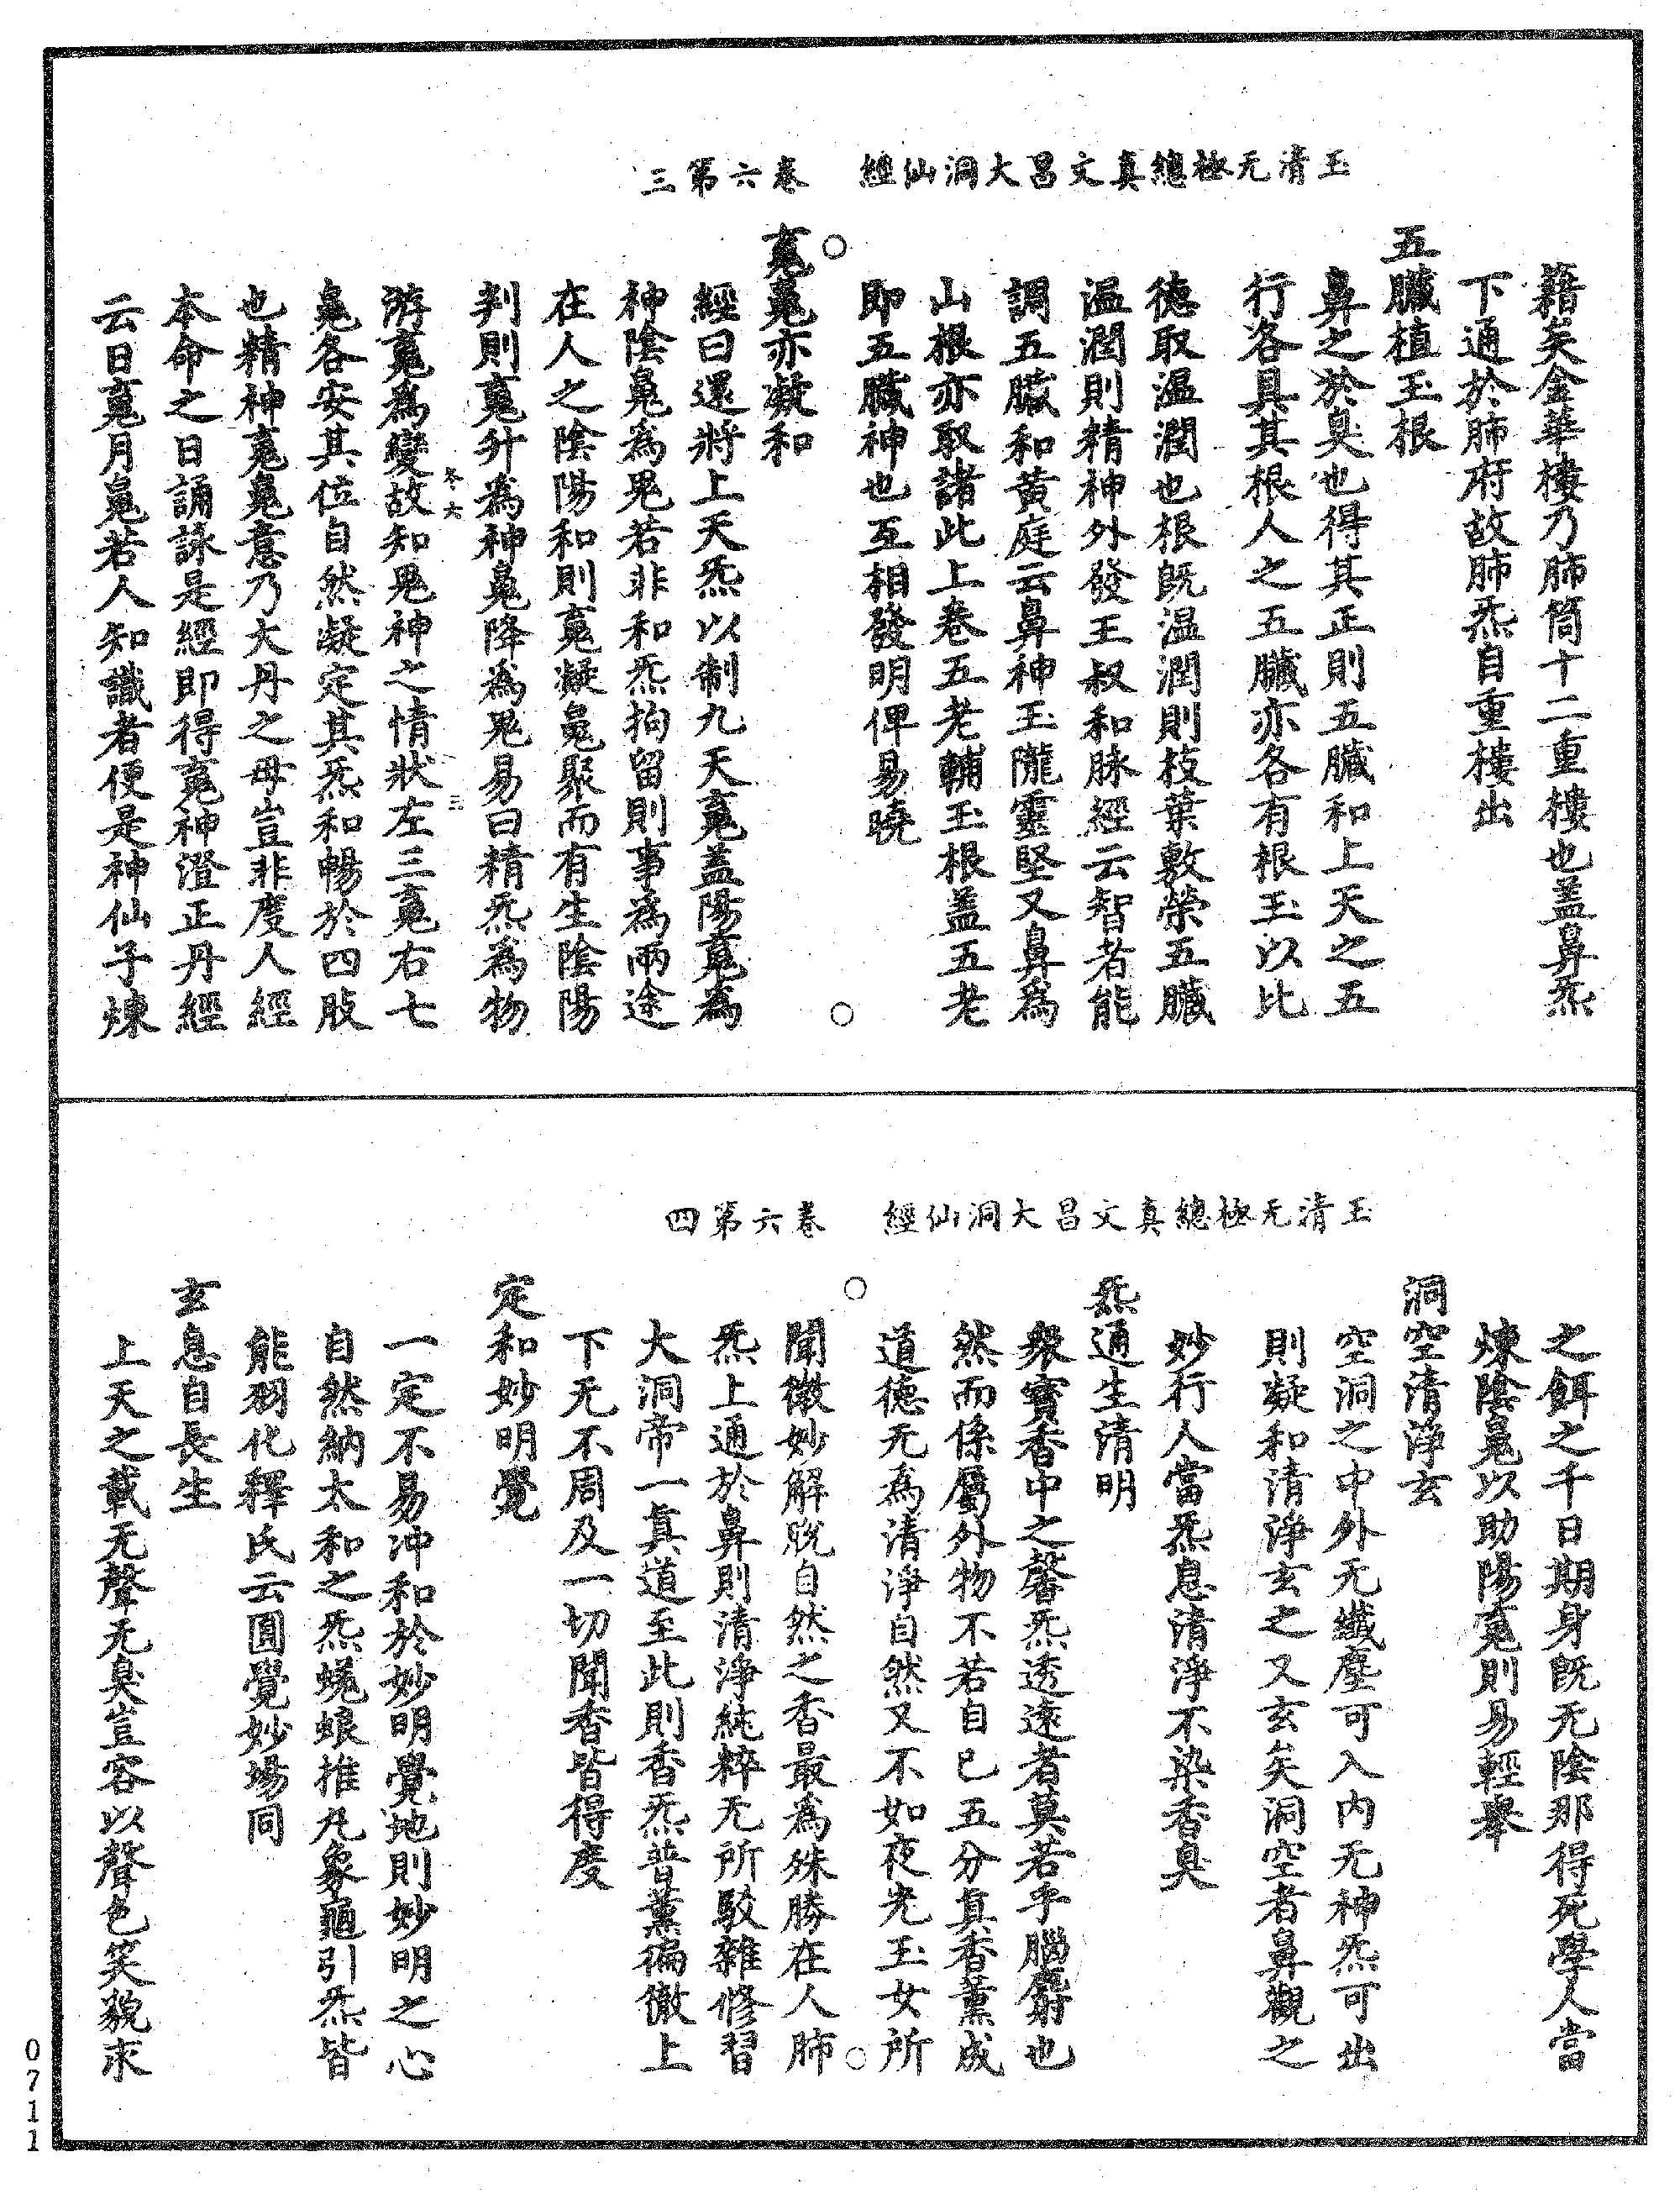 玉清无極總真文昌大洞仙經　卷六第三
籍矣金華樓乃肺筒十二重樓也盖鼻炁
下通於肺府故肺炁自重樓出
五臟植玉根
鼻之於臭也得其正則五臟和上天之五
行各具其根人之五臟亦各有根玉以比
德取温潤也根既温潤則枝葉敷榮五臟
温潤則精神外發王叔和脉經云智者能
調五臟和黃庭云鼻神玉隴靈堅又鼻為
山根亦取諸此上卷五老輔玉根盖五老
即五臟神也互相發明俾易曉
䰟䰟亦凝和
經曰還將上天炁以制九天䰟盖陽䰟為
神陰䰟為鬼若非和炁拘留則事為兩途
在人之陰陽和則䰟凝䰟聚而有生陰陽
判則䰟升為神䰟降為鬼易曰精炁為物
游䰟為變故知鬼神之情狀左三䰟右七
䰟各安其位自然凝定其炁和暢於四肢
也精神䰟䰟意乃大丹之母豈非度人經
本命之日誦詠是經即得䰟神澄正丹經
云日䰟月䰟若人知識者便是神仙子煉
冬六
三
玉清无極總真文昌大洞仙經　卷六第四
之餌之千日期身既无陰那得死學人當
煉陰䰟以助陽䰟則易輕舉
洞空清淨玄
空洞之中外无纖塵可入内无神炁可出
則凝和清淨玄之又玄矣洞空者鼻觀之
妙行人當炁息清淨不染香臭
炁通生清明
衆寶香中之馨炁透遠者莫若乎腦麝也
然而係屬外物不若自己五分真香薰成
道德无為清淨自然又不如夜光玉女所
聞微妙解脫自然之香最為殊勝在人肺
炁上通於鼻則清淨純粹无所駁雜修習
大洞帝一真道至此則香炁普薰徧徹上
下无不周及一切聞香皆得度
定和妙明覺
一定不易沖和於妙明覺地則妙明之心
自然納太和之炁蜣蜋推丸象龜引炁皆
能羽化釋氏云圓覺妙場同
玄息自長生
上天之載无聲无臭豈容以聲色笑貌求
0711